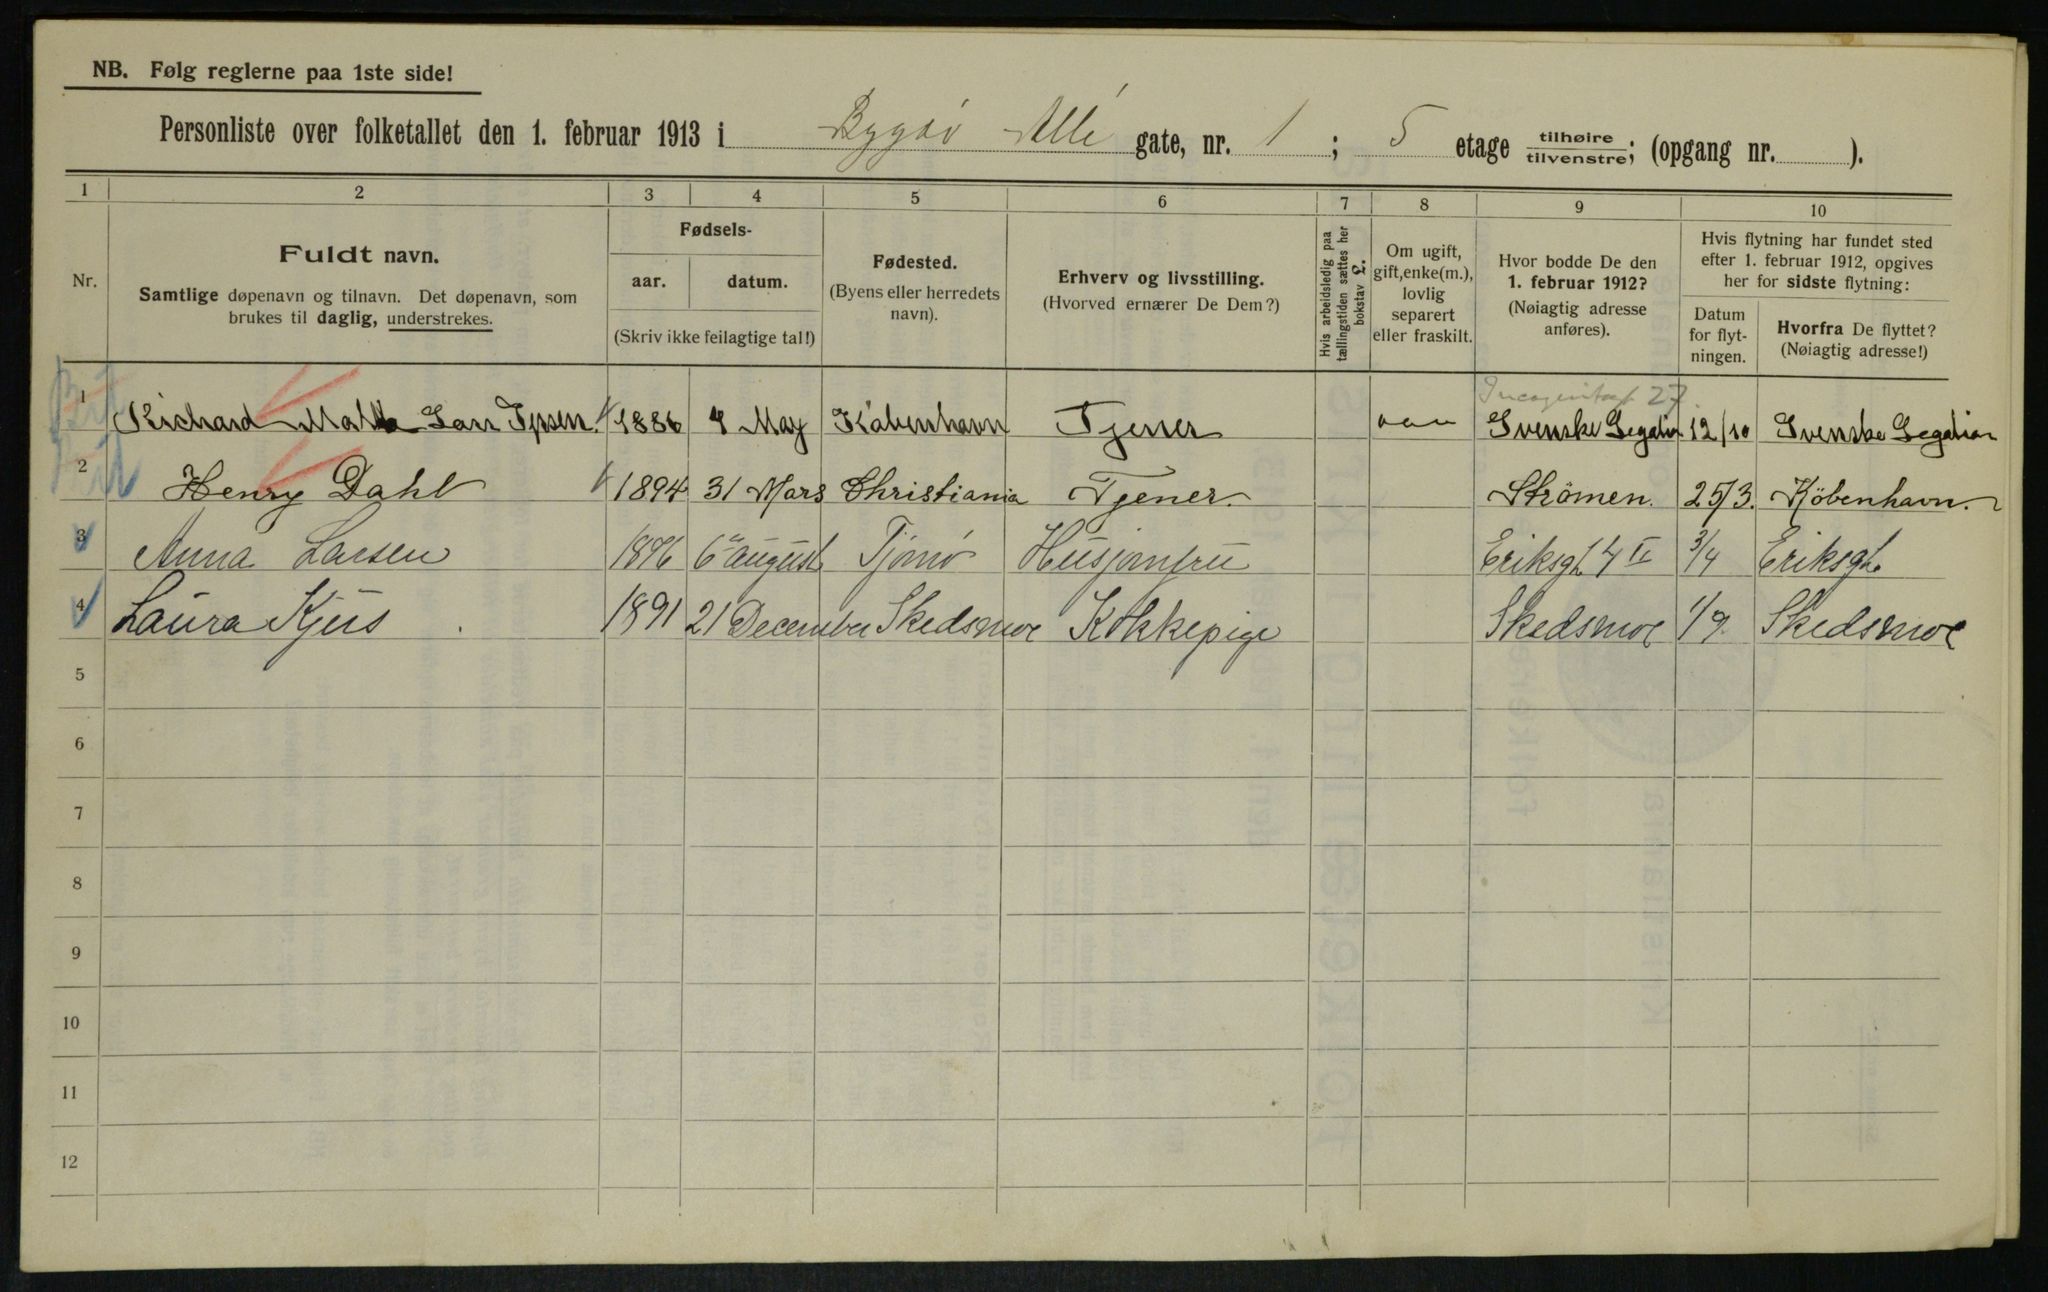 NB. Følg reglerne paa 1ste side!
Personliste over folketallet den 1. februar 1913 i Bygdø Allé gate, nr. 1 ; 5 etage tilhøire/tilvenstre; (opgang nr. ).
1 2 3 4 5 6 7 8 9 10
Nr.
Fuldt navn.
Samtlige døpenavn og tilnavn. Det døpenavn, som
brukes til daglig, understrekes.
Fødsels-
aar. datum.
(Skriv ikke feilagtige tal!)
Fødested.
(Byens eller herredets
navn).
Erhverv og livsstilling.
(Hvorved ernærer De Dem?)
Hvis arbeidsledig paa
tællingstiden sættes her
bokstav £.
Om ugift,
gift, enke(m.),
lovlig
separert
eller fraskilt.
Hvor bodde De den
1. februar 1912?
(Nøiagtig adresse
anføres).
Hvis flytning har fundet sted
efter 1. februar 1912, opgives
her for sidste flytning:
Datum
for flyt-
ningen.
Hvorfra De flyttet?
(Nøiagtig adresse!)
27
1 Richard 1886 4 May København Tjener Svenske Legation 12/10 Svenske Legation
2 Henry Dahl 1894 31 Mars Christiania Tjener Strömen. 25/3. Köbenhavn.
3 Anna Larsen 1896 6 august Tjømø Husjomfru Eriksgt. 4 II 3/4 Eriksgt.
4 Laura Kjus 1891 21 December Skedsmoe Kokkepige Skedsmoe 1/9. Skedsmoe
5
6
7
8
9
10
11
12